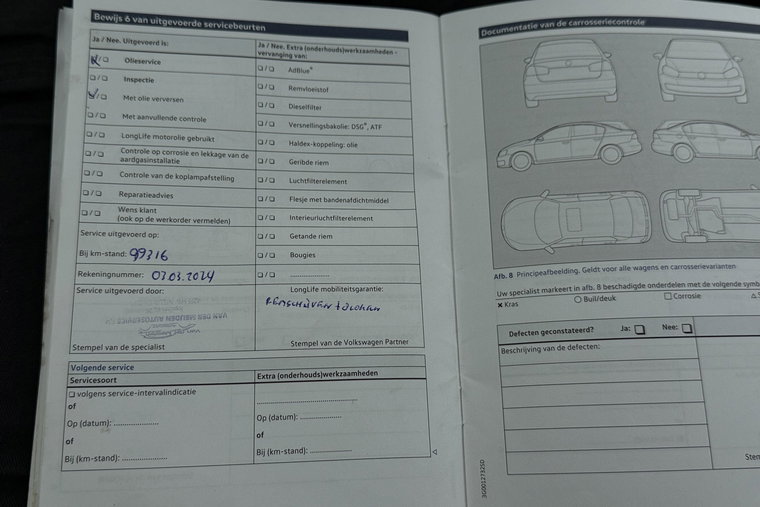 Bewijs 6 van uitgevoerde servicebeurten
Ja / Nee. Uitgevoerd is:
Olieservice
Inspectie
Met olie verversen
Met aanvullende controle
LongLife motorolie gebruikt
Controle op corrosie en lekkage van de
aardgasinstallatie
Controle van de koplampafstelling
Reparatieadvies
Wens klant
(ook op de werkorder vermelden)
Service uitgevoerd op:
Bij km-stand: 99316
Rekeningnummer: 07.03.2024
Service uitgevoerd door:
VAN DER MEIJDEN AUTOSERVICE
Stempel van de specialist
Ja / Nee. Extra (onderhouds)werkzaamheden -
vervanging van:
AdBlue®
Remvloeistof
Dieselfilter
Versnellingsbakolie: DSG®, ATF
Haldex-koppeling: olie
Geribde riem
Luchtfilterelement
Flesje met bandenafdichtmiddel
Interieurluchtfilterelement
Getande riem
Bougies
....................
LongLife mobiliteitsgarantie:
REMSCHIJVEN + BLOKKEN
Stempel van de Volkswagen Partner
Volgende service
Servicesoort
volgens service-intervalindicatie
of
Op (datum): ....................
of
Bij (km-stand): ....................
Extra (onderhouds)werkzaamheden
....................
Op (datum): ....................
of
Bij (km-stand): ....................
Documentatie van de carrosseriecontrole
Afb. 8 Principeafbeelding. Geldt voor alle wagens en carrosserievarianten
Uw specialist markeert in afb. 8 beschadigde onderdelen met de volgende
Kras
Buil/deuk
Corrosie
Defecten geconstateerd? Ja: Nee:
Beschrijving van de defecten:
3G0012732SD